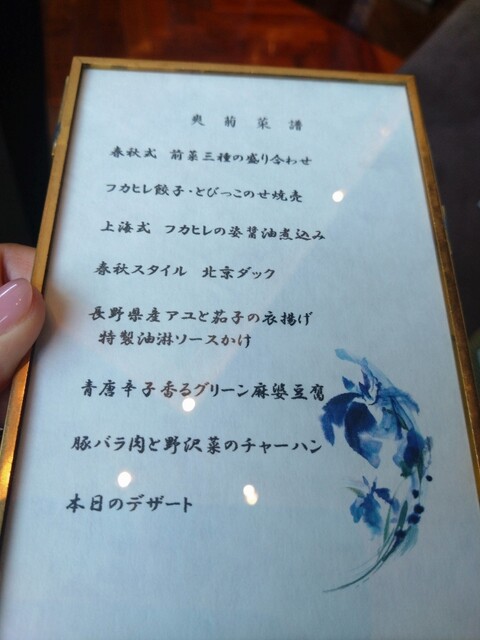 爽菊菜譜
春秋式 前菜三種の盛り合わせ
フカヒレ餃子・とびっこのせ焼売
上海式 フカヒレの姿醤油煮込み
春秋スタイル 北京ダック
長野県産アユと茄子の衣揚げ
特製油淋ソースかけ
青唐辛子香るグリーン麻婆豆腐
豚バラ肉と野沢菜のチャーハン
本日のデザート